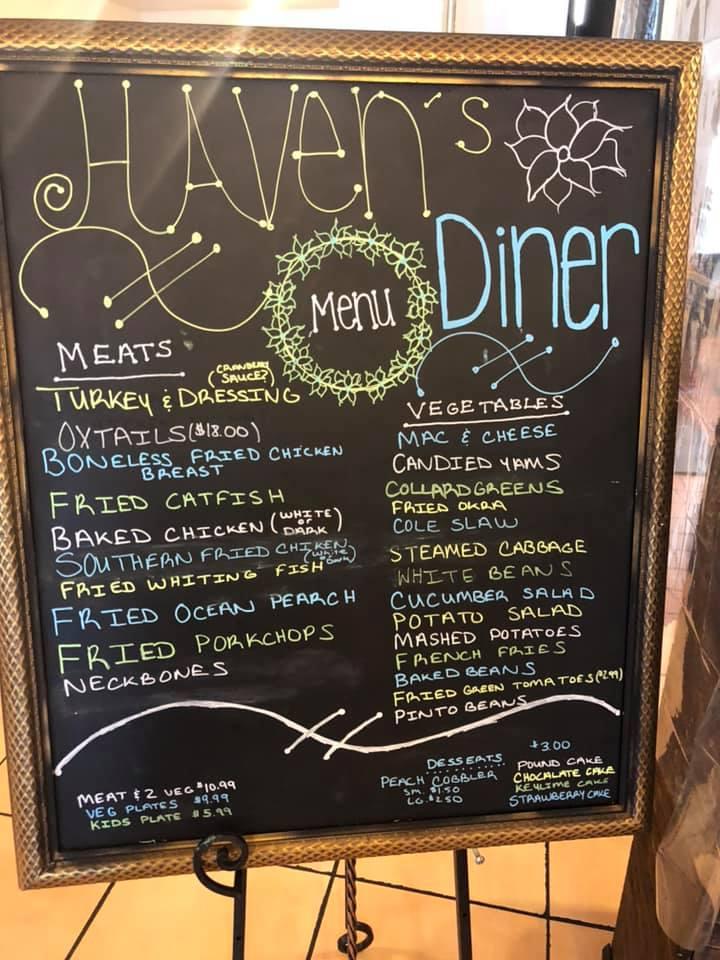 HAVEN's
Diner
Menu
MEATS
TURKEY & DRESSING (CRANBERRY SAUCE?)
OXTAILS ($18.00)
BONELESS FRIED CHICKEN
BREAST
FRIED CATFISH
BAKED CHICKEN (WHITE or DARK)
SOUTHERN FRIED CHICKEN
FRIED WHITING FISH
FRIED OCEAN PEARCH
FRIED PORKCHOPS
NECKBONES
VEGETABLES
MAC & CHEESE
CANDIED YAMS
COLLARD GREENS
FRIED OKRA
COLE SLAW
STEAMED CABBAGE
WHITE BEANS
CUCUMBER SALAD
POTATO SALAD
MASHED POTATOES
FRENCH FRIES
BAKED BEANS
FRIED GREEN TOMATOES ($2.99)
PINTO BEANS
MEAT & 2 VEG $10.99
VEG PLATES $9.99
KIDS PLATE $5.99
DESSERTS
PEACH COBBLER
SM. $1.50
LG. $2.50
$3.00
POUND CAKE
CHOCALATE CAKE
KEYLIME CAKE
STRAWBERRY CAKE